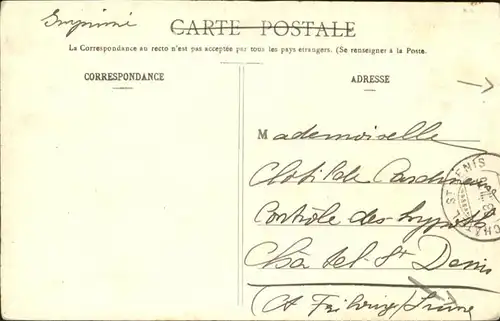 Imprimé
CARTE POSTALE
La Correspondance au recto n'est pas acceptée par tous les pays étrangers. (Se renseigner à la Poste.
CORRESPONDANCE
ADRESSE
Mademoiselle
Clotilde
Contrôle des Impôts
Châtel-St Denis
Ct Fribourg/Suisse
CHÂTEL ST DENIS